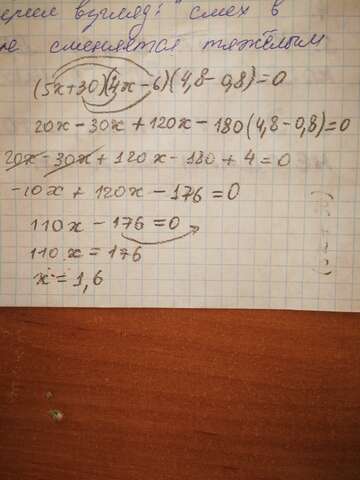 взгляд: смех в
сменяется тяжёлым
(5x+30)(4x-6)(4,8-0,8)=0
20x-30x+120x-180(4,8-0,8)=0
20x-30x+120x-180+4=0
-10x+120x-176=0
110x-176=0
110x=176
x=1,6